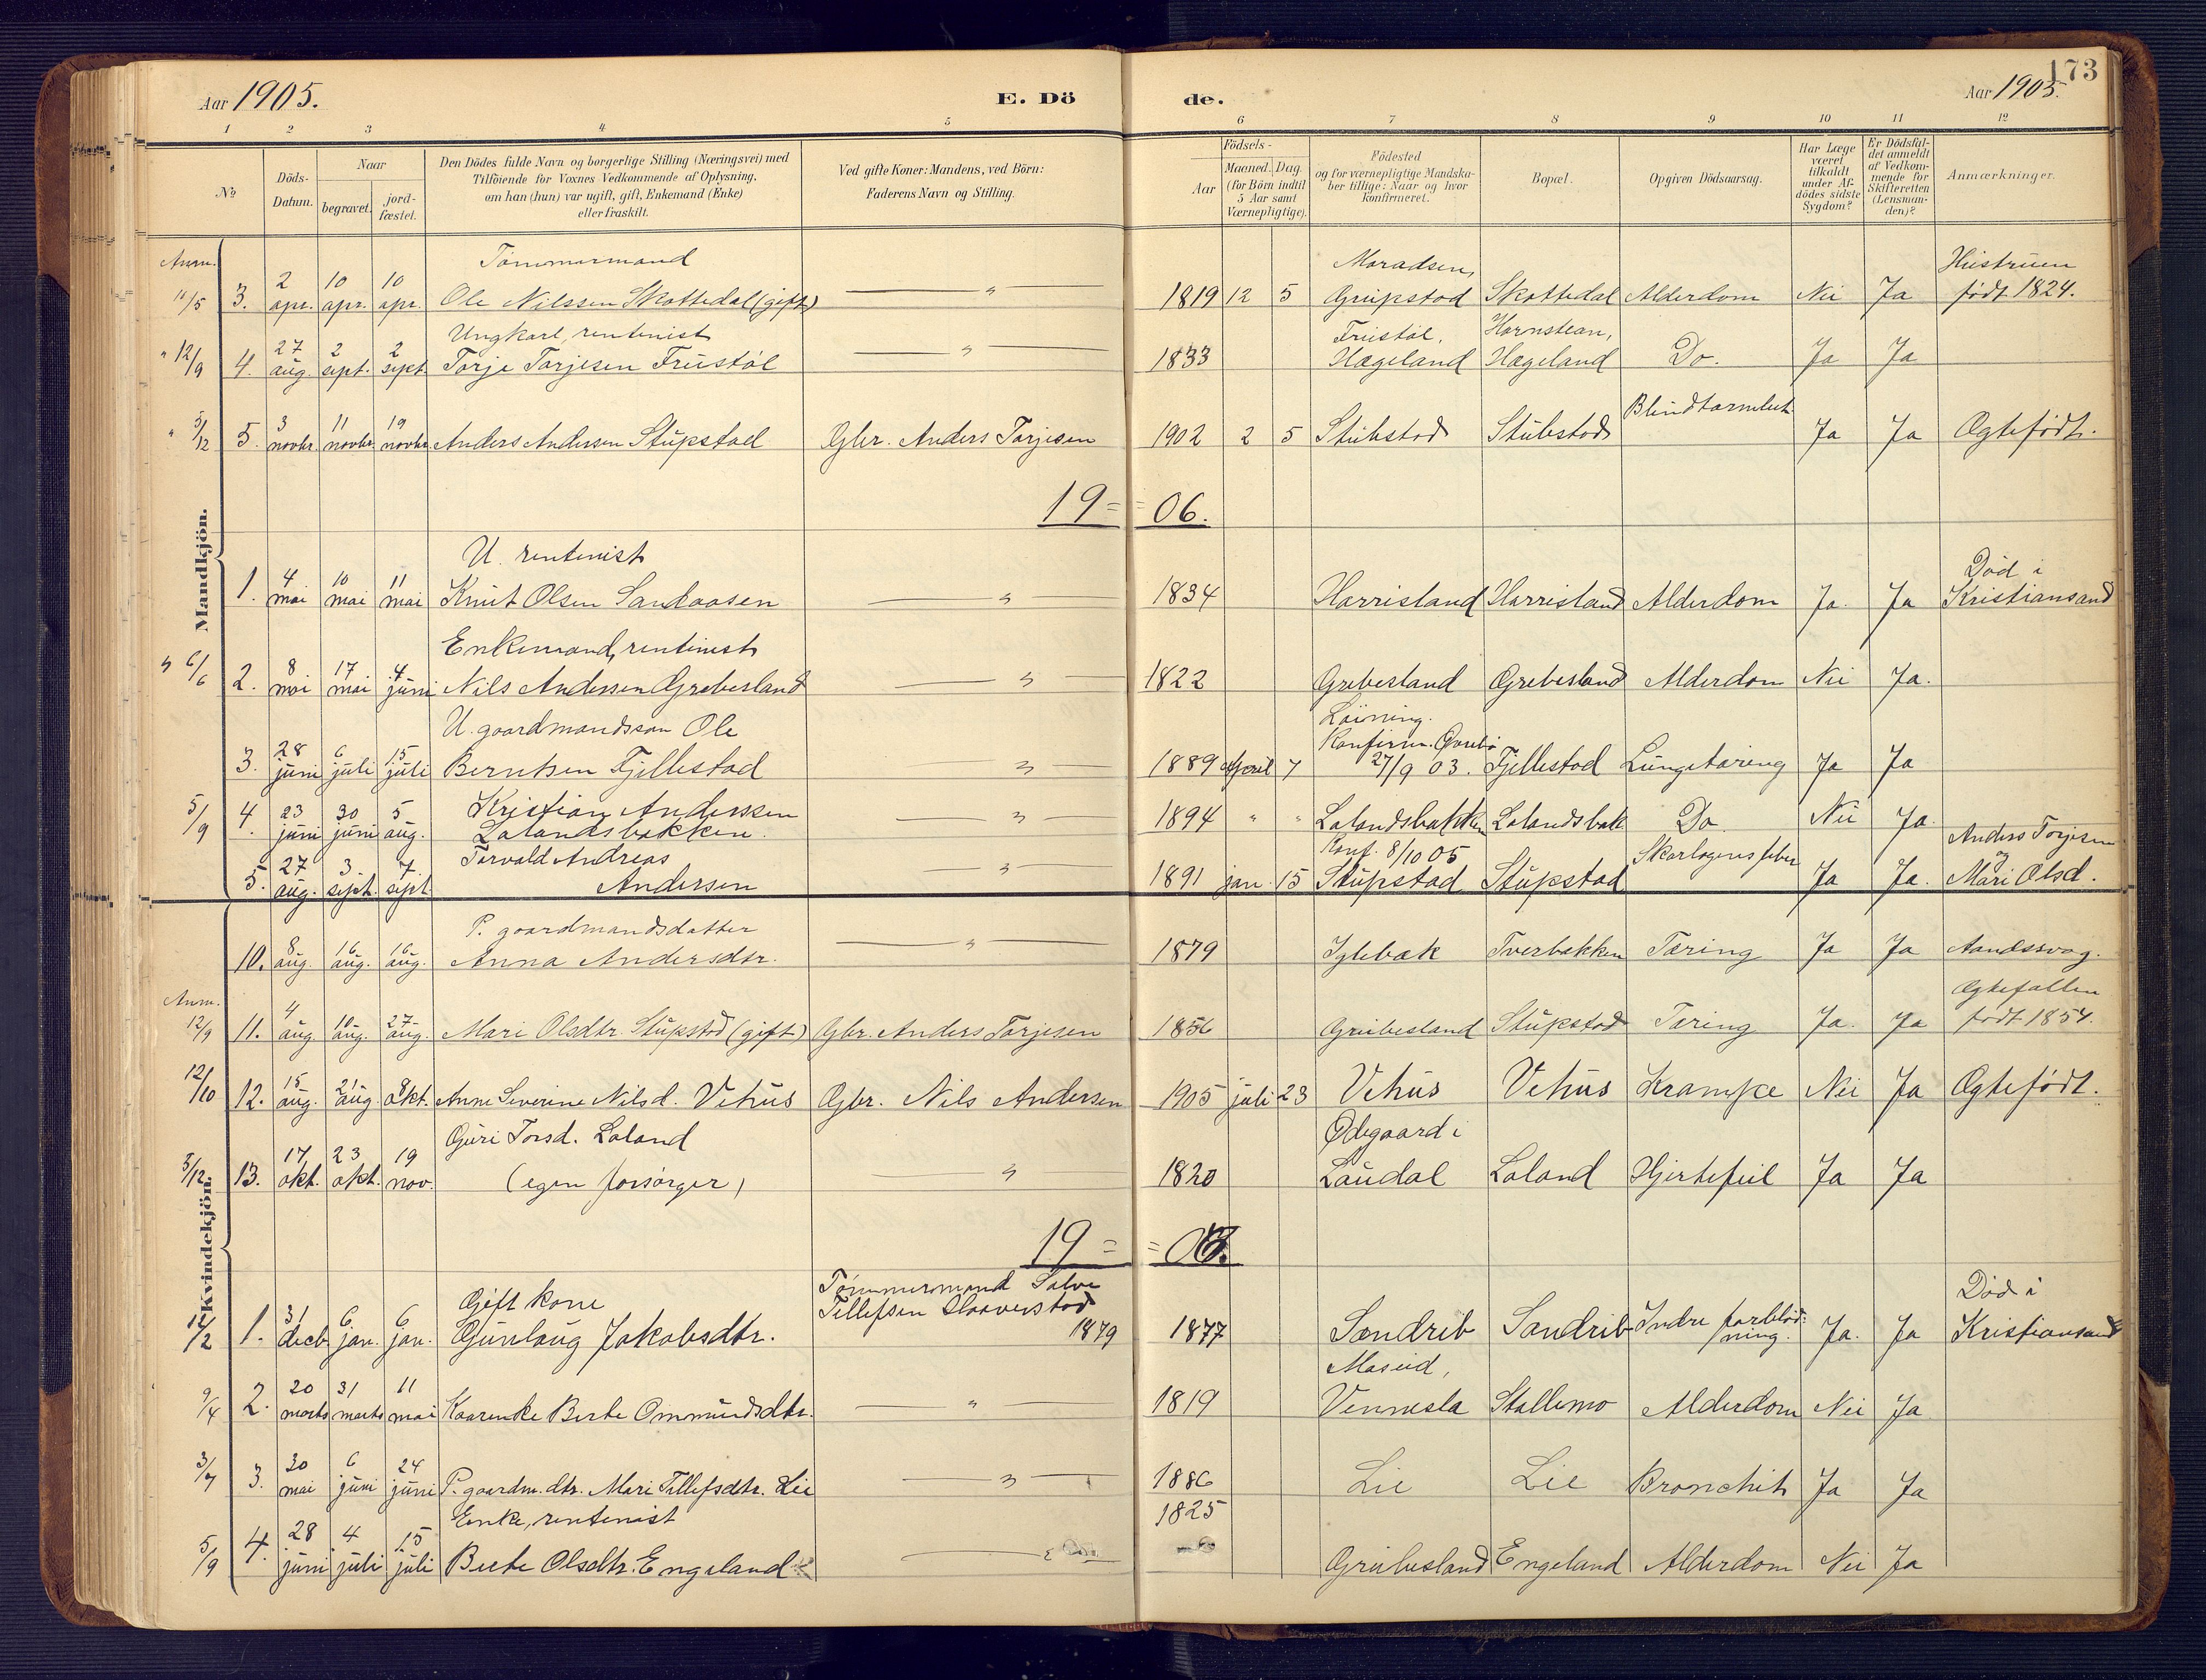 Aar 1905.
E. Dö
de.
Aar 1905.
173
1 2 3 4 5 6 7 8 9 10 11 12
No
Döds-Datum.
Naar
begravet.
jord-fæstet.
Den Dödes fulde Navn og borgerlige Stilling (Næringsvei) med
Tilföiende for Voxnes Vedkommende af Oplysning,
om han (hun) var ugift, gift, Enkemand (Enke)
eller fraskilt.
Ved gifte Koner: Mandens, ved Börn:
Faderens Navn og Stilling.
Födsels-
Aar
Maaned. Dag.
(for Börn indtil
5 Aar samt
Værnepligtige).
Födested
og for værnepligtige Mandska-
ber tillige: Naar og hvor
konfirmeret.
Bopæl.
Opgiven Dödsaarsag.
Har Læge
været
tilkaldt
under Af-
dödes sidste
Sygdom?
Er Dödsfal-
det anmeldt
af Vedkom-
mende for
Skifteretten
(Lensman-
den)?
Anmærkninger.
Mandkjön.
Anm. Tömmermand Hustruen
11/5 3. 2 apr. 10 apr. 10 apr. Ole Nilssen Skottedal (gift) " 1819 12 5 Grupstod Skottedal Alderdom Nei Ja födt 1824.
Ungkarl, rentenist Frustöl, Hornstean,
" 12/9 4. 27 aug. 2 sept. 2 sept. Torje Torjesen Frustöl " 1833 Hægeland Hægeland Do. Ja Ja
" 5/12 5. 3 novbr. 11 novbr. 19 novbr. Anders Andersen Stupstad Gbr. Anders Torjesen 1902 2 5 Stubstod Stubstod Ja Ja Ægtefödt.
19= =06.
U. rentenist Död i
1. 4 mai 10 mai 11 mai Knut Olsen Sandaasen " 1834 Horrisland Horrisland Alderdom Ja. Ja Kristiansand
Enkemand, rentenist
" 6/6 2. 8 mai 17 mai 4 juni Nils Andersen Grebesland " 1822 Grebesland Grebesland Alderdom Nei Ja.
U. gaardmandssøn Ole Löining.
Konfirm. Øvrebø
3. 28 juni 6 juli 15 juli Berntsen Fjellestad " 1889 April 7 27/9 03. Fjellestad Lungetæring Ja Ja
5/9 4. 23 juni 30 juni 5 aug. Kristian Anderssen " 1894 " " Lolandsbakken Lolandsbak Do. Nei Ja.
Lolandsbakken.
Torvald Andreas Konf. 8/10 05 Skarlagensfeber Anders Torjesen
5. 27 aug. 3. sept. 7. sept. Andersen " 1891 jan. 15 Stupstad Stupstad Ja Ja. og Mari Olsd.
Kvindekjön.
P. gaardmandsdatter
10. 8 aug. 16 aug. 16 aug. Anna Andersdtr. " 1879 Iglebæk Tverbakken Tæring Ja Ja Aandssvag.
Anm. Ægtefællen
12/9 11. 4 aug. 10 aug. 27 aug. Mari Olsdtr. Stupstad (gift) Gbr. Anders Torjesen 1856 Grubesland Stupstad Tæring Ja. Ja födt 1854.
12/10 12. 15 aug. 21 aug 8 okt. Anne Severine Nilsd. Vehus Gbr. Nils Andersen 1905 juli 23 Vehus Vehus Krampe Nei Ja Ægtefödt.
Guri Torsd. Loland Ødegaard i
5/12 13. 17 okt. 23 okt. 19 nov. (egen forsörger) " 1820 Laudal Loland Hjertefeil Ja Ja
19= =06.
Gift kone Tömmermand Salve Död i
Tellefsen Haaverstad
12/2 1. 31 decb. 6 jan. 6 jan. Gunlaug Jakobsdtr. 1879 1877 Sandrib Sandrib Indre forblöd-ning. Ja. Ja Kristiansand
Moseid,
9/4 2. 20 marts 31 marts 11 mai Kaarenke Berte Ommundsdtr. " 1819 Vennesla Stallemo Alderdom Nei Ja
3/7 3. 30 mai 6 juni 24 juni P. gaardm. dtr. Mari Tellefsdtr. Lie " 1886 Lie Lie Bronchit Ja Ja
Enke, rentenist 1825
5/9 4. 28 juni 4 juli 15 juli Berte Olsdtr. Engeland " Grubesland Engeland Alderdom Nei Ja